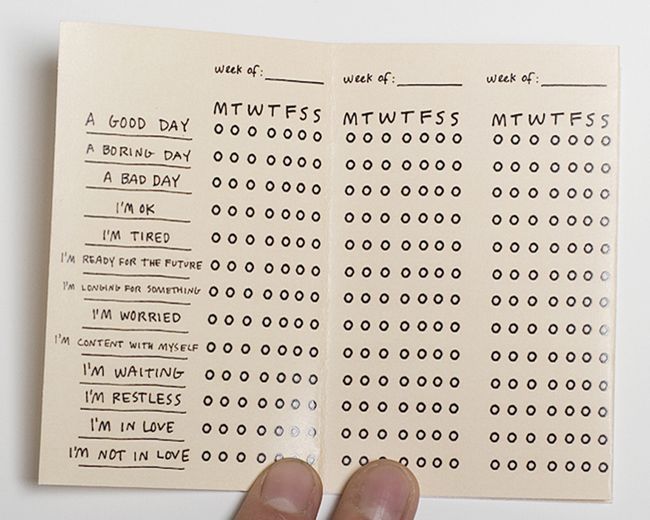 week of: week of: week of:
M T W T F S S M T W T F S S M T W T F S S
A GOOD DAY
A BORING DAY
A BAD DAY
I'M OK
I'M TIRED
I'M READY FOR THE FUTURE
I'M LONGING FOR SOMETHING
I'M WORRIED
I'M CONTENT WITH MYSELF
I'M WAITING
I'M RESTLESS
I'M IN LOVE
I'M NOT IN LOVE